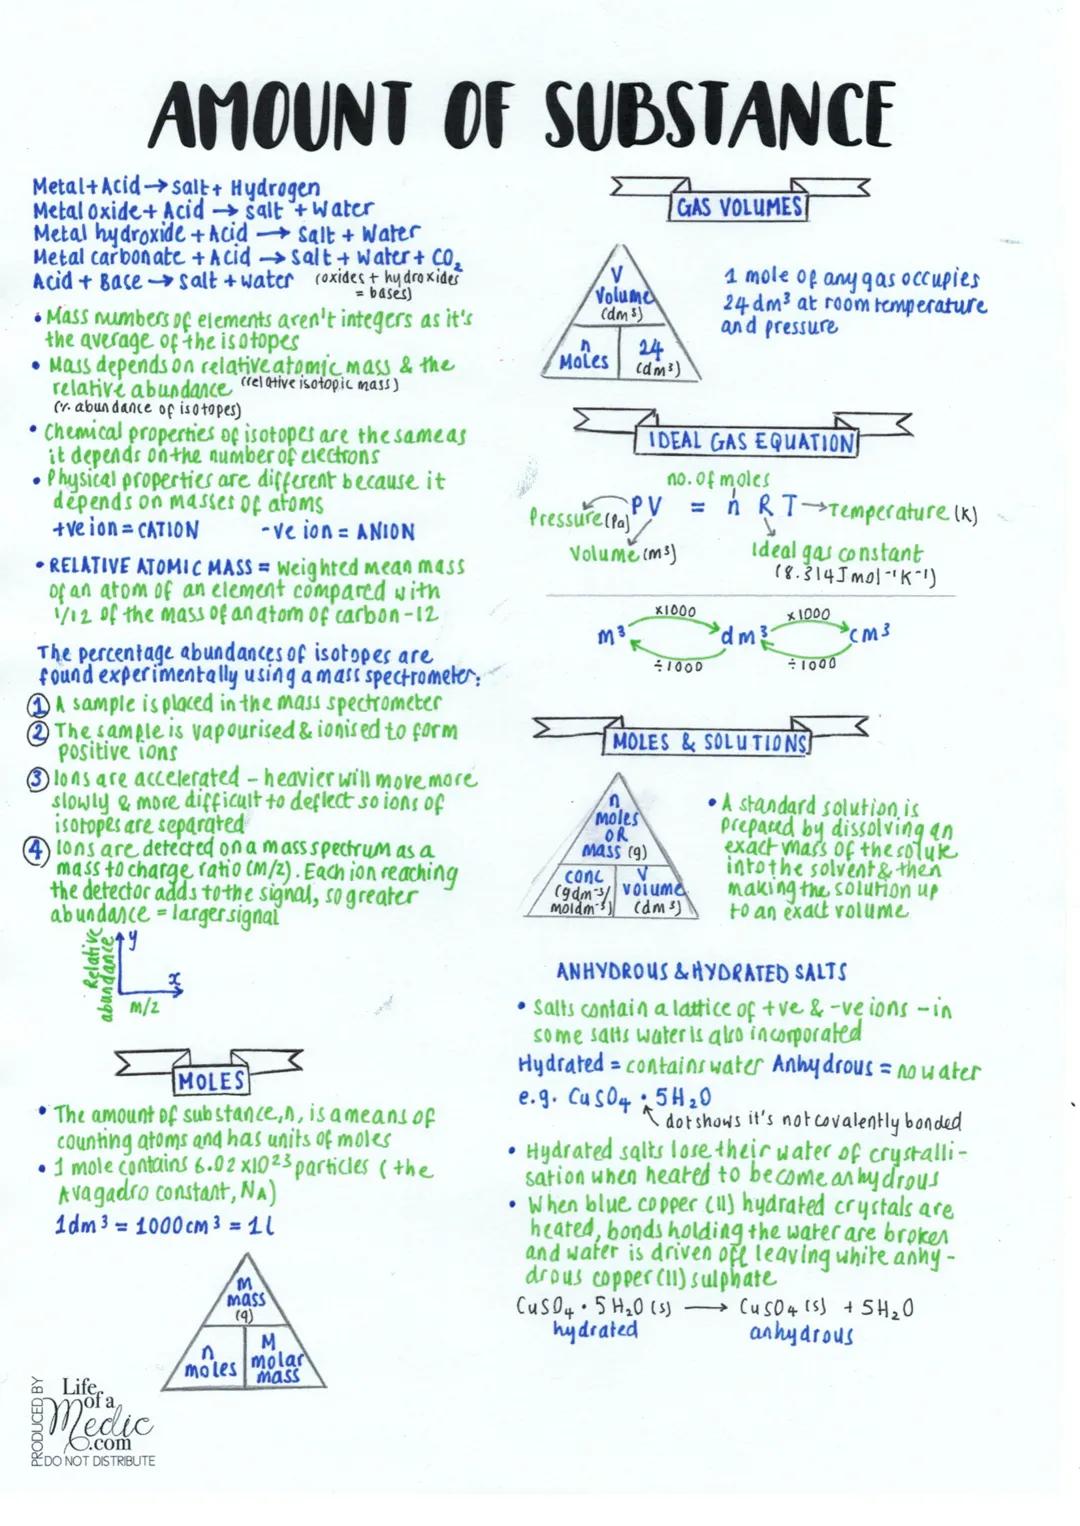 AMOUNT OF SUBSTANCE
Metal + Acid → salt + Hydrogen
Metal oxide + Acid → salt + Water
Metal hydroxide + Acid → Salt + Water
Metal carbonate + Acid → Salt + Water + CO₂
Acid + Base → salt + water (oxides + hydroxides
= bases)
• Mass numbers of elements aren't integers as it's
the average of the isotopes
• Mass depends on relative atomic mass & the
relative abundance (relative isotopic mass)
(% abundance of isotopes)
• Chemical properties of isotopes are the same as
it depends on the number of electrons
• Physical properties are different because it
depends on masses of atoms
+ve ion = CATION -ve ion = ANION
• RELATIVE ATOMIC MASS = Weighted mean mass
of an atom of an element compared with
1/12 of the mass of an atom of carbon-12
The percentage abundances of isotopes are
found experimentally using a mass spectrometer:
① A sample is placed in the mass spectrometer
② The sample is vapourised & ionised to form
positive ions
③ Ions are accelerated - heavier will move more
slowly & more difficult to deflect so ions of
isotopes are separated
④ Ions are detected on a mass spectrum as a
mass to charge ratio (m/z). Each ion reaching
the detector adds to the signal, so greater
abundance = larger signal
Relative
abundance
y
x
m/z
MOLES
• The amount of substance, n, is a means of
counting atoms and has units of moles
• 1 mole contains 6.02 x10²³ particles (the
Avagadro constant, NA)
1dm³ = 1000cm³ = 1l
M
mass
(g)
n
moles
M
molar
mass
PRODUCED BY
Life
of a
Medic
.com
DO NOT DISTRIBUTE
GAS VOLUMES
V
Volume
(dm³)
n
Moles
24
(dm³)
1 mole of any gas occupies
24 dm³ at room temperature
and pressure
IDEAL GAS EQUATION
no. of moles
Pressure (Pa) PV = n R T → Temperature (K)
Volume (m³) Ideal gas constant
(8.314 J mol⁻¹ K⁻¹)
x1000 x1000
m³ dm³ cm³
÷1000 ÷1000
MOLES & SOLUTIONS
n
moles
OR
mass (g)
conc
(gdm⁻³/
moldm⁻³)
V
volume
(dm³)
• A standard solution is
prepared by dissolving an
exact mass of the solute
into the solvent & then
making the solution up
to an exact volume
ANHYDROUS & HYDRATED SALTS
• Salts contain a lattice of +ve & -ve ions - in
some salts water is also incorporated
Hydrated = contains water Anhydrous = no water
e.g. CuSO₄ • 5H₂O
dot shows it's not covalently bonded
• Hydrated salts lose their water of crystalli-
sation when heated to become anhydrous
• When blue copper (II) hydrated crystals are
heated, bonds holding the water are broken
and water is driven off leaving white anhy-
drous copper (II) sulphate
CuSO₄ • 5H₂O (s) → CuSO₄ (s) + 5H₂O
hydrated anhydrous